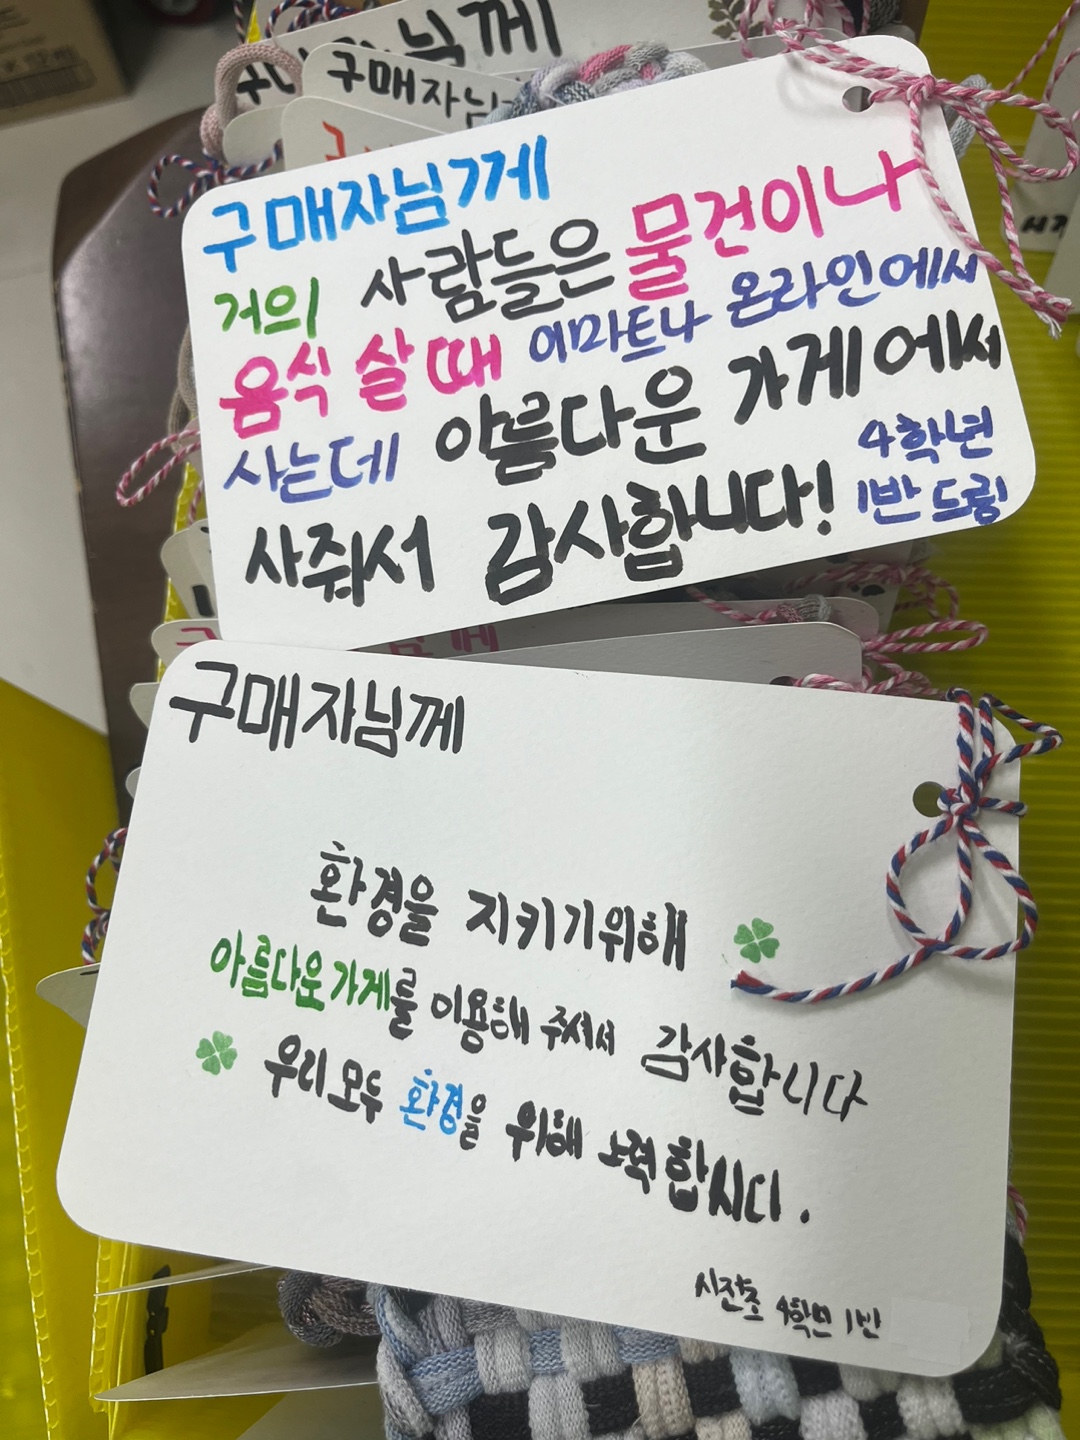 구매자님께
구매자님
구매자님께
거의 사람들은 물건이나
음식 살 때 이마트나 온라인에서
사는데 아름다운 가게에서
사줘서 감사합니다!
4학년
1반 드림
구매자님께
환경을 지키기위해
아름다운가게를 이용해 주셔서 감사합니다
우리모두 환경을 위해 노력합시다.
시전초 4학년 1반